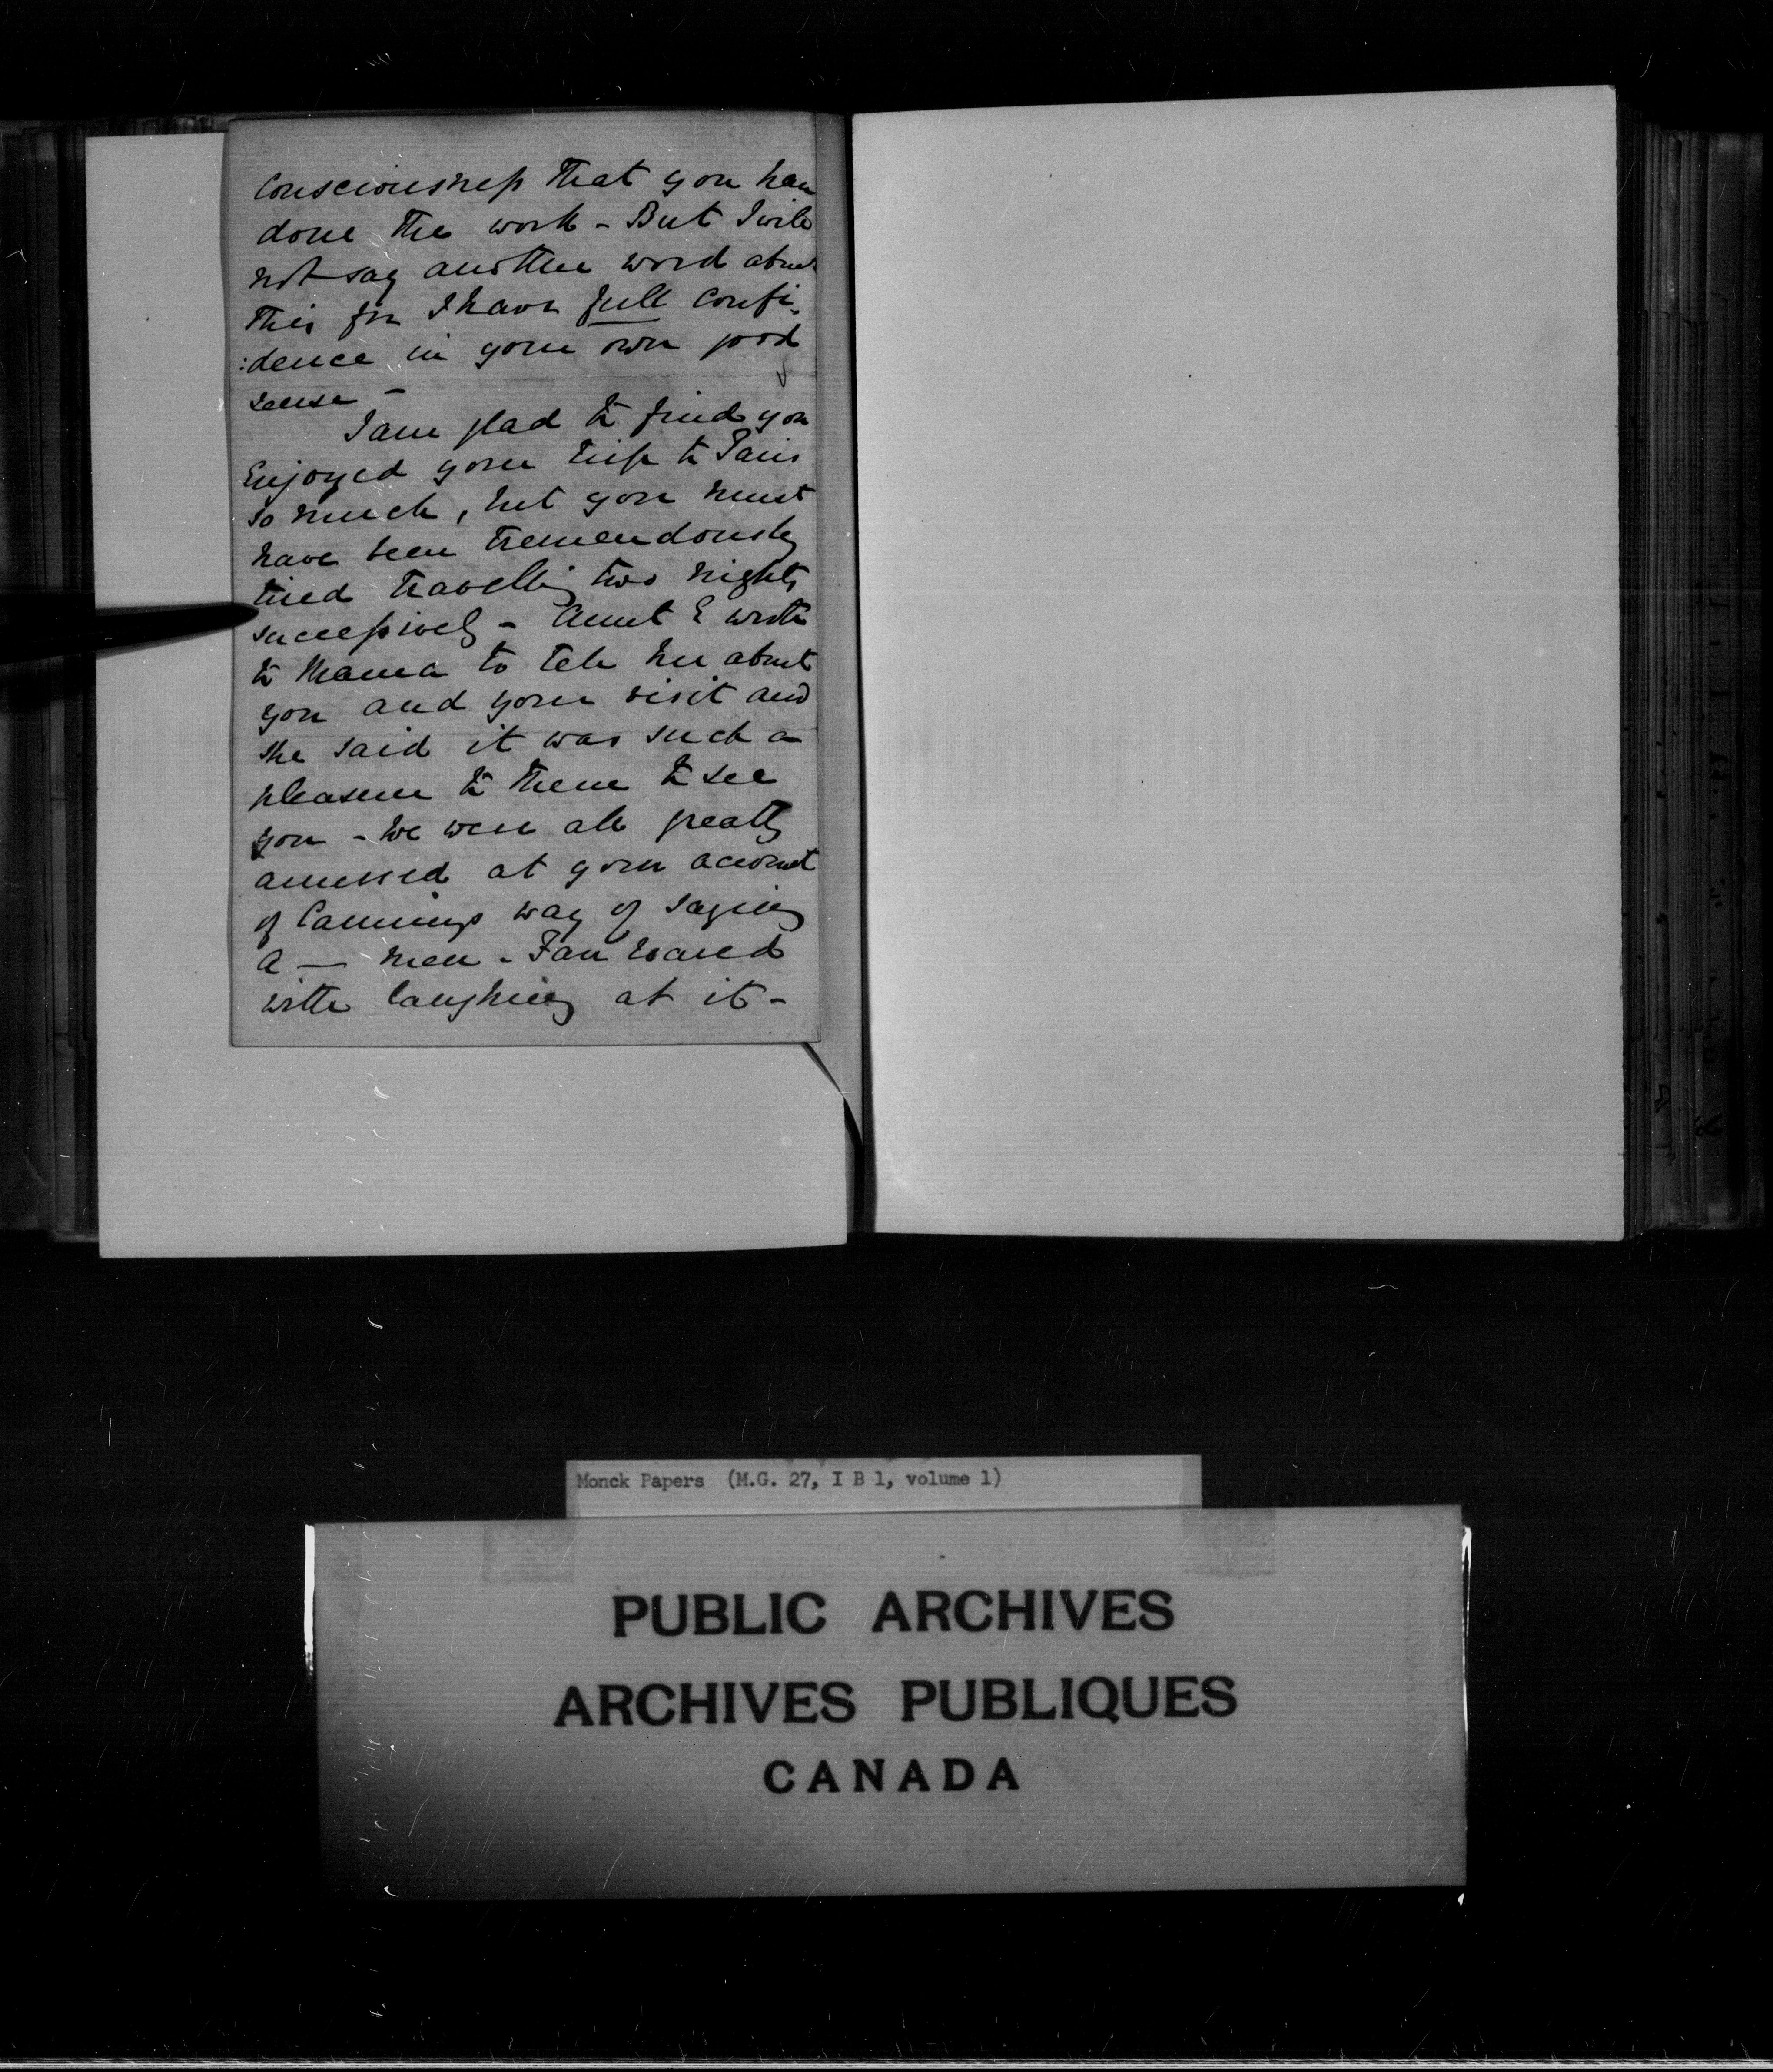 consciousness that you have
done the work - But I will
not say another word about
this for I have full confi-
:dence in your own good
sense -
I am glad to find you
enjoyed your trip to Paris
so much, but you must
have been tremendously
tired travelling two nights
successively - Aunt E wrote
to Mama to tell her about
you and your visit and
she said it was such a
pleasure to them to see
you - We were all greatly
amused at your account
of Cannings way of saying
a — men - Fan roared
with laughing at it -
Monck Papers (M.G. 27, I B 1, volume 1)
PUBLIC ARCHIVES
ARCHIVES PUBLIQUES
CANADA